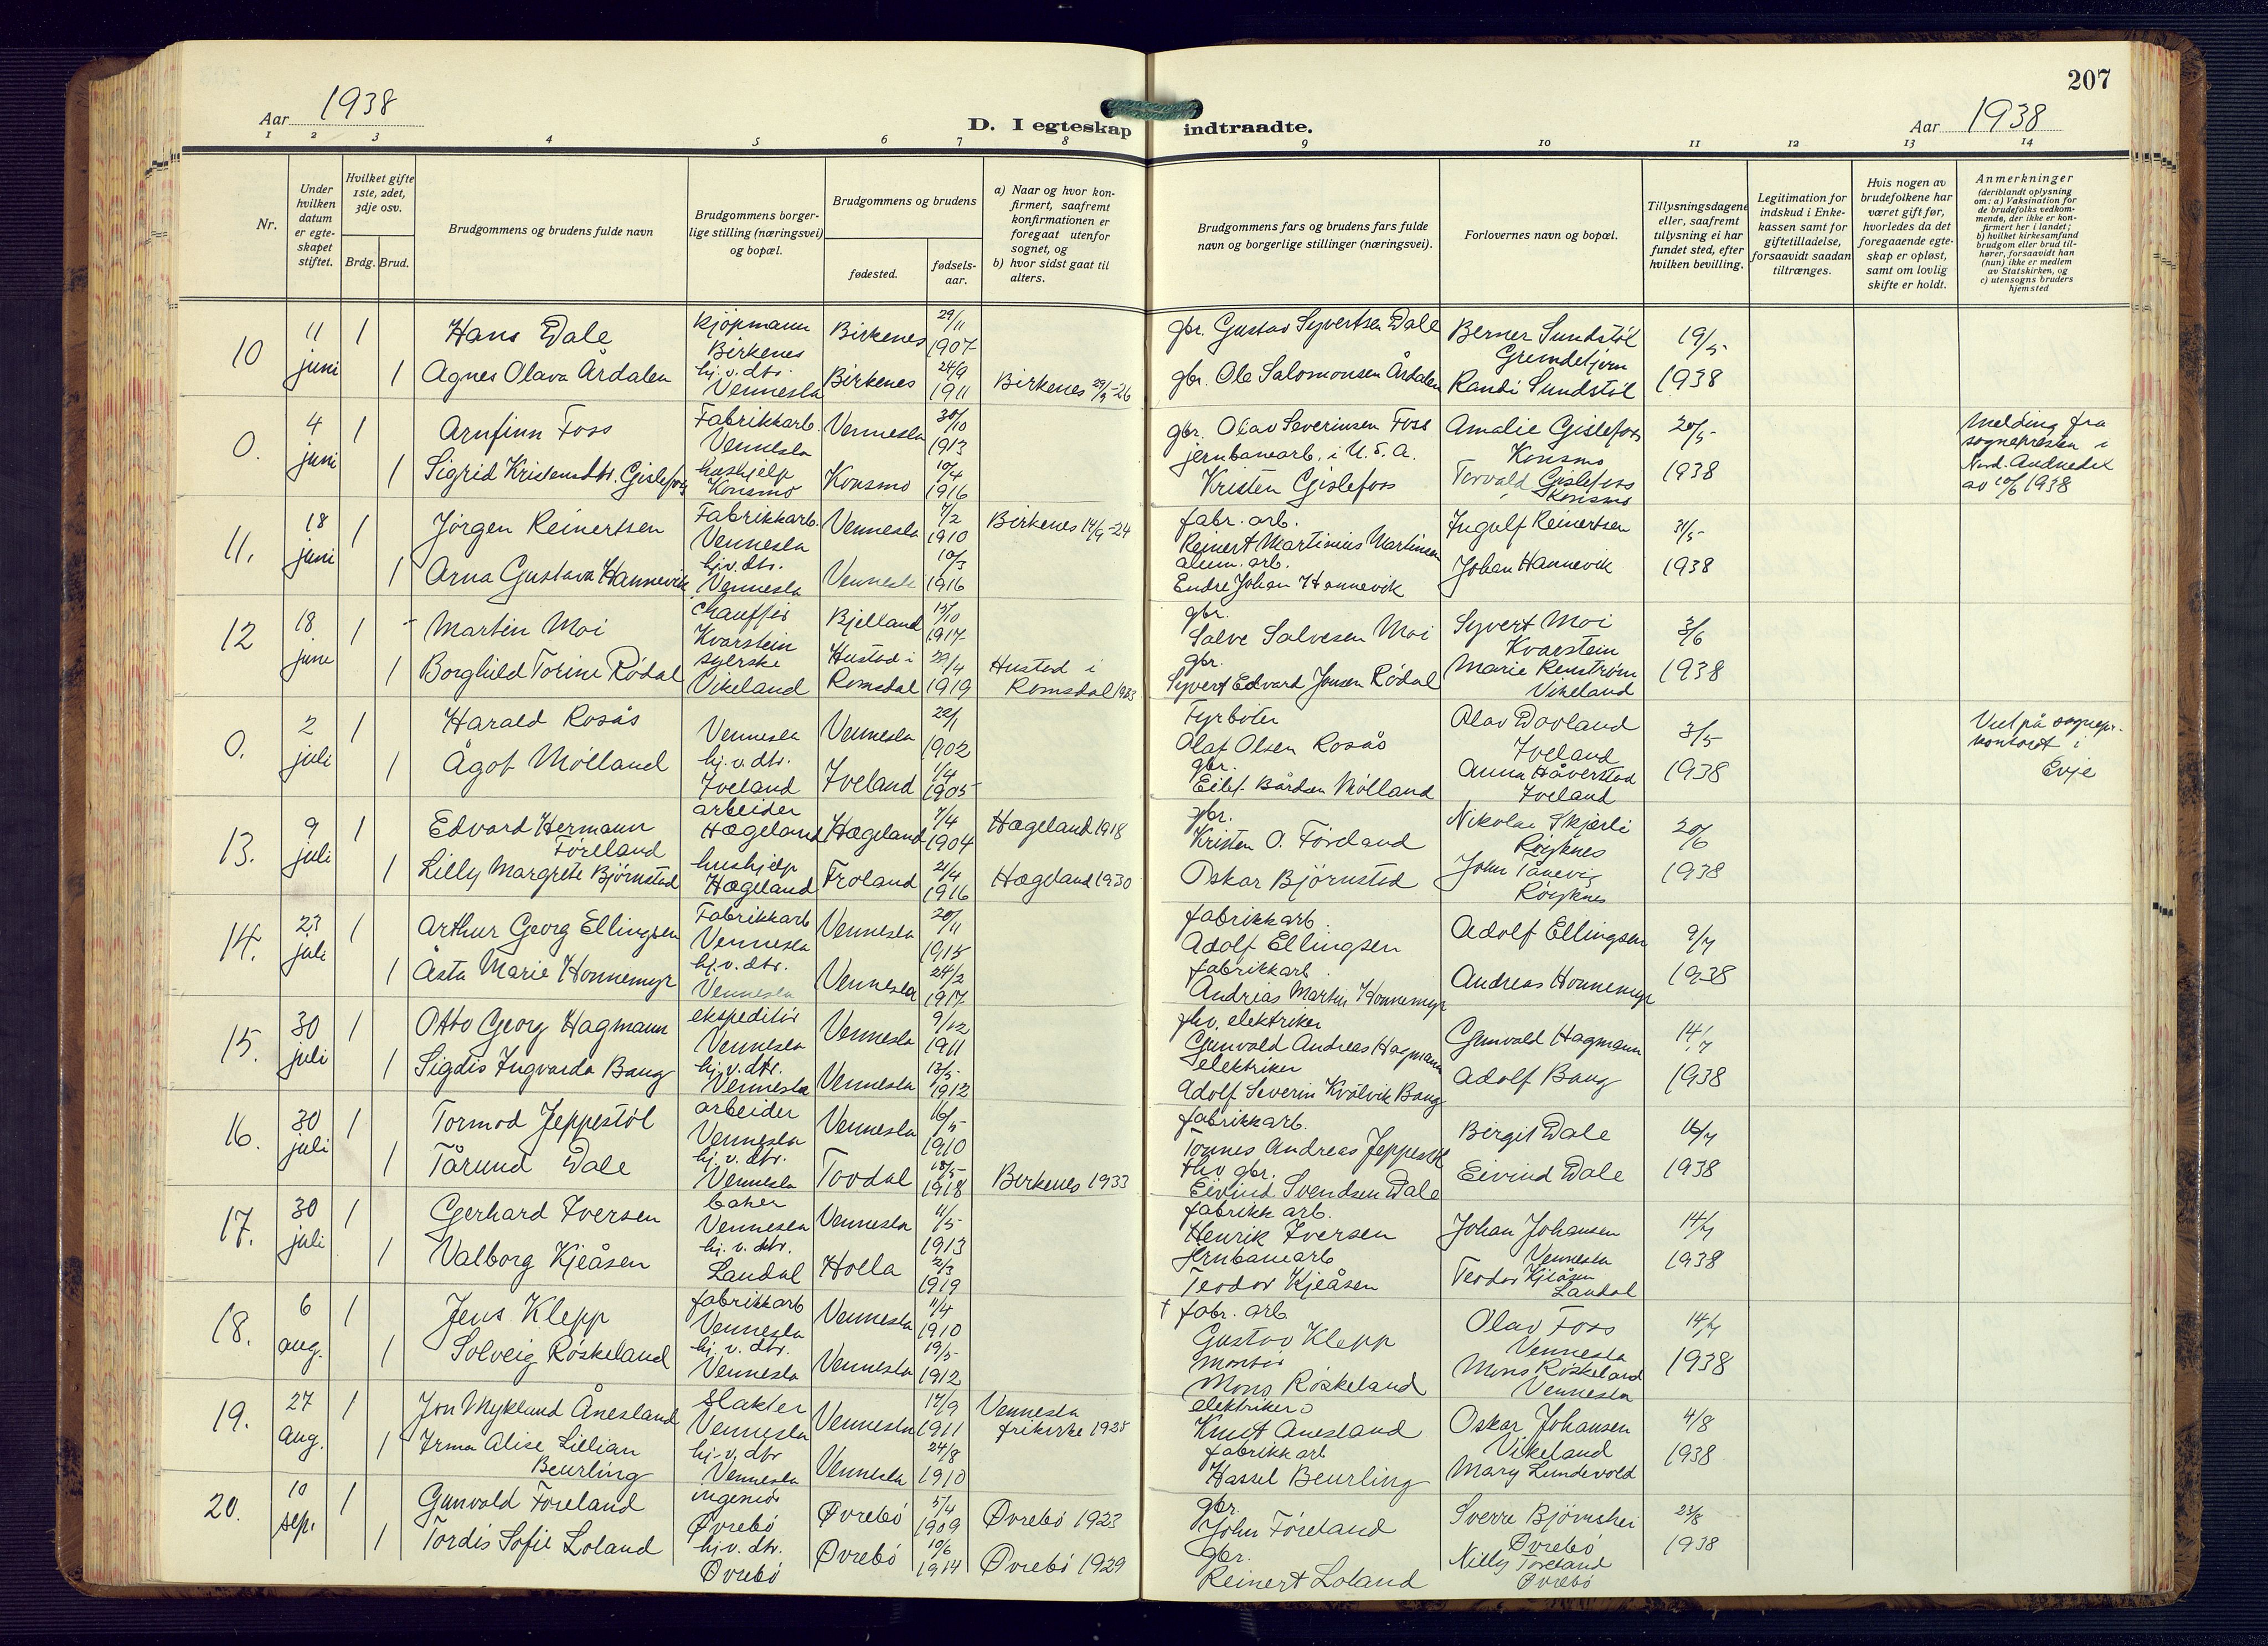 207
Aar 1938
D. I egteskap indtraadte.
Aar 1938
1 2 3 4 5 6 7 8 9 10 11 12 13 14
Nr.
Under hvilken datum er egte-skapet stiftet.
Hvilket gifte 1ste, 2det, 3dje osv.
Brdg. Brud.
Brudgommens og brudens fulde navn
Brudgommens borger-lige stilling (næringsvei) og bopæl.
Brudgommens og brudens
fødested.
fødsels-aar.
a) Naar og hvor kon-firmert, saafremt konfirmationen er foregaat utenfor sognet, og
b) hvor sidst gaat til alters.
Brudgommens fars og brudens fars fulde navn og borgerlige stillinger (næringsvei).
Forlovernes navn og bopæl.
Tillysningsdagene eller, saafremt tillysning ei har fundet sted, efter hvilken bevilling.
Legitimation for indskud i Enke-kassen samt for giftetilladelse, forsaavidt saadan tiltrænges.
Hvis nogen av brudefolkene har været gift før, hvorledes da det foregaaende egte-skap er opløst, samt om lovlig skifte er holdt.
Anmerkninger
(deriblandt oplysning om: a) Vaksination for de brudefolks vedkom-mende, der ikke er kon-firmert her i landet; b) hvilket kirkesamfund brudgom eller brud til-hører, forsaavidt han (hun) ikke er medlem av Statskirken, og c) utensogns bruders hjemsted
10 11 juni 1 Hans Dale kjøpmann Birkenes Birkenes 29/11 1907 gbr. Gustav Syvertsen Dale Berner Sundstøl 19/5 1938
1 Agnes Olava Årdalen hj.v.dtr. Vennesla Birkenes 24/9 1911 Birkenes 29/9-26 gbr. Ole Salomonsen Årdalen Randi Sundstøl
0. 4 juni 1 Arnfinn Foss Fabrikkarb. Vennesla Vennesla 30/10 1913 gbr. Olav Severinsen Foss jernbanearb. i U.S.A. Amalie Gislefoss Konsmo 20/5 1938 Melding fra sognepresten i Nord. Audnedal av 10/6 1938
1 Sigrid Kristensdtr. Gislefoss hushjelp Konsmo Konsmo 10/4 1916 Kristen Gislefoss Torvald Gislefoss Konsmo
11. 18 juni 1 Jørgen Reinertsen Fabrikkarb. Vennesla Vennesla 7/2 1910 Birkenes 14/9-24 fabr. arb. Reinert Martinius Martinsen Ingulf Reinertsen 31/5 1938
1 Arna Gustava Hannevik hj.v.dtr. Vennesla Vennesla 10/3 1916 alum. arb. Endre Johan Hannevik Johan Hannevik
12 18 june 1 Martin Moi chauffør Kvarstein Bjelland 15/10 1917 gbr. Salve Salvesen Moi Syvert Moi Kvarstein 3/6 1938
1 Borghild Torine Rødal syerske Vikeland Hustad i Romsdal 29/4 1919 Hustad i Romsdal 1933 gbr. Syvert Edvard Jonsen Rødal Marie Renstrøm Vikeland
0. 2 juli 1 Harald Rosås Vennesla Vennesla 22/1 1902 Fyrbøter Olaf Olsen Rosås Olav Dovland Iveland 3/5 1938 Viet på sognepr. kontoret i Evje
1 Ågot Mølland hj.v.dtr. Iveland Iveland 1/4 1905 gbr. Eilef Bårdsen Mølland Anna Håverstad Iveland
13. 9 juli 1 Edvard Hermann Føreland arbeider Hægeland Hægeland 7/4 1904 Hægeland 1918 gbr. Kristen O. Føreland Nikolai Skjærli Røyknes 20/6 1938
1 Lilly Margrete Bjørnstad hushjelp Hægeland Froland 21/4 1916 Hægeland 1930 Oskar Bjørnstad John Tånevig Røyknes
14. 23 juli 1 Arthur Georg Ellingsen Fabrikkarb Vennesla Vennesla 20/11 1915 fabrikkarb. Adolf Ellingsen Adolf Ellingsen 9/7 1938
1 Åsta Marie Honnemyr hj.v.dtr. Vennesla Vennesla 24/2 1917 fabrikkarb. Andreas Martin Honnemyr Andreas Honnemyr
15. 30 juli 1 Otto Georg Hagmann ekspeditør Vennesla Vennesla 9/12 1911 fhv. elektriker Gunvald Andreas Hagmann Gunvald Hagmann 14/7 1938
1 Sigdis Ingvarda Bang hj.v.dtr. Vennesla Vennesla 13/5 1912 elektriker Adolf Severin Kvålvik Bang Adolf Bang
16. 30 juli 1 Tormod Jeppestøl arbeider Vennesla Vennesla 16/5 1910 fabrikkarb. Tomnes Andreas Jeppestøl Birgit Dale 16/7 1938
1 Tårund Dale hj.v.dtr. Vennesla Tovdal 18/5 1918 Birkenes 1933 fhv. gbr. Eivind Svendsen Dale Eivind Dale
17. 30 juli 1 Gerhard Iversen baker Vennesla Vennesla 11/5 1913 fabrikk arb. Henrik Iversen Johan Johansen Vennesla 14/7 1938
1 Valborg Kjeåsen hj.v.dtr. Laudal Holla 2/3 1919 jernbanearb Teodor Kjeåsen Teodor Kjeåsen Laudal
18. 6 aug. 1 Jens Klepp fabrikkarb Vennesla Vennesla 11/4 1910 † fabr. arb Gustav Klepp Olav Foss Vennesla 14/7 1938
1 Solveig Røskeland hj.v.dtr. Vennesla Vennesla 19/5 1912 montør Mons Røskeland Mons Røskeland Vennesla
19. 27 aug. 1 Jon Myklund Ånesland slakter Vennesla Vennesla 17/9 1911 Vennesla frikirke elektriker Knut Ånesland Oskar Johansen Vikeland 4/8 1938
1 Irma Alise Lillian Beurling hj.v.dtr Vennesla Vennesla 24/8 1910 fabrikkarb Hassel Beurling Mary Lundevold
20. 10 sep. 1 Gunvald Føreland ingeniør Øvrebø Øvrebø 5/4 1909 Øvrebø 1923 gbr. John Føreland Sverre Bjørnshei Øvrebø 23/8 1938
1 Tordis Sofie Løland hj.v.dtr. Øvrebø Øvrebø 10/6 1914 Øvrebø 1929 gbr. Reinert Løland Nilly Føreland Øvrebø